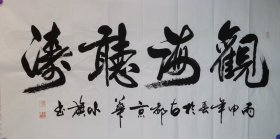 觀海聽濤
丙申年春於古都京華